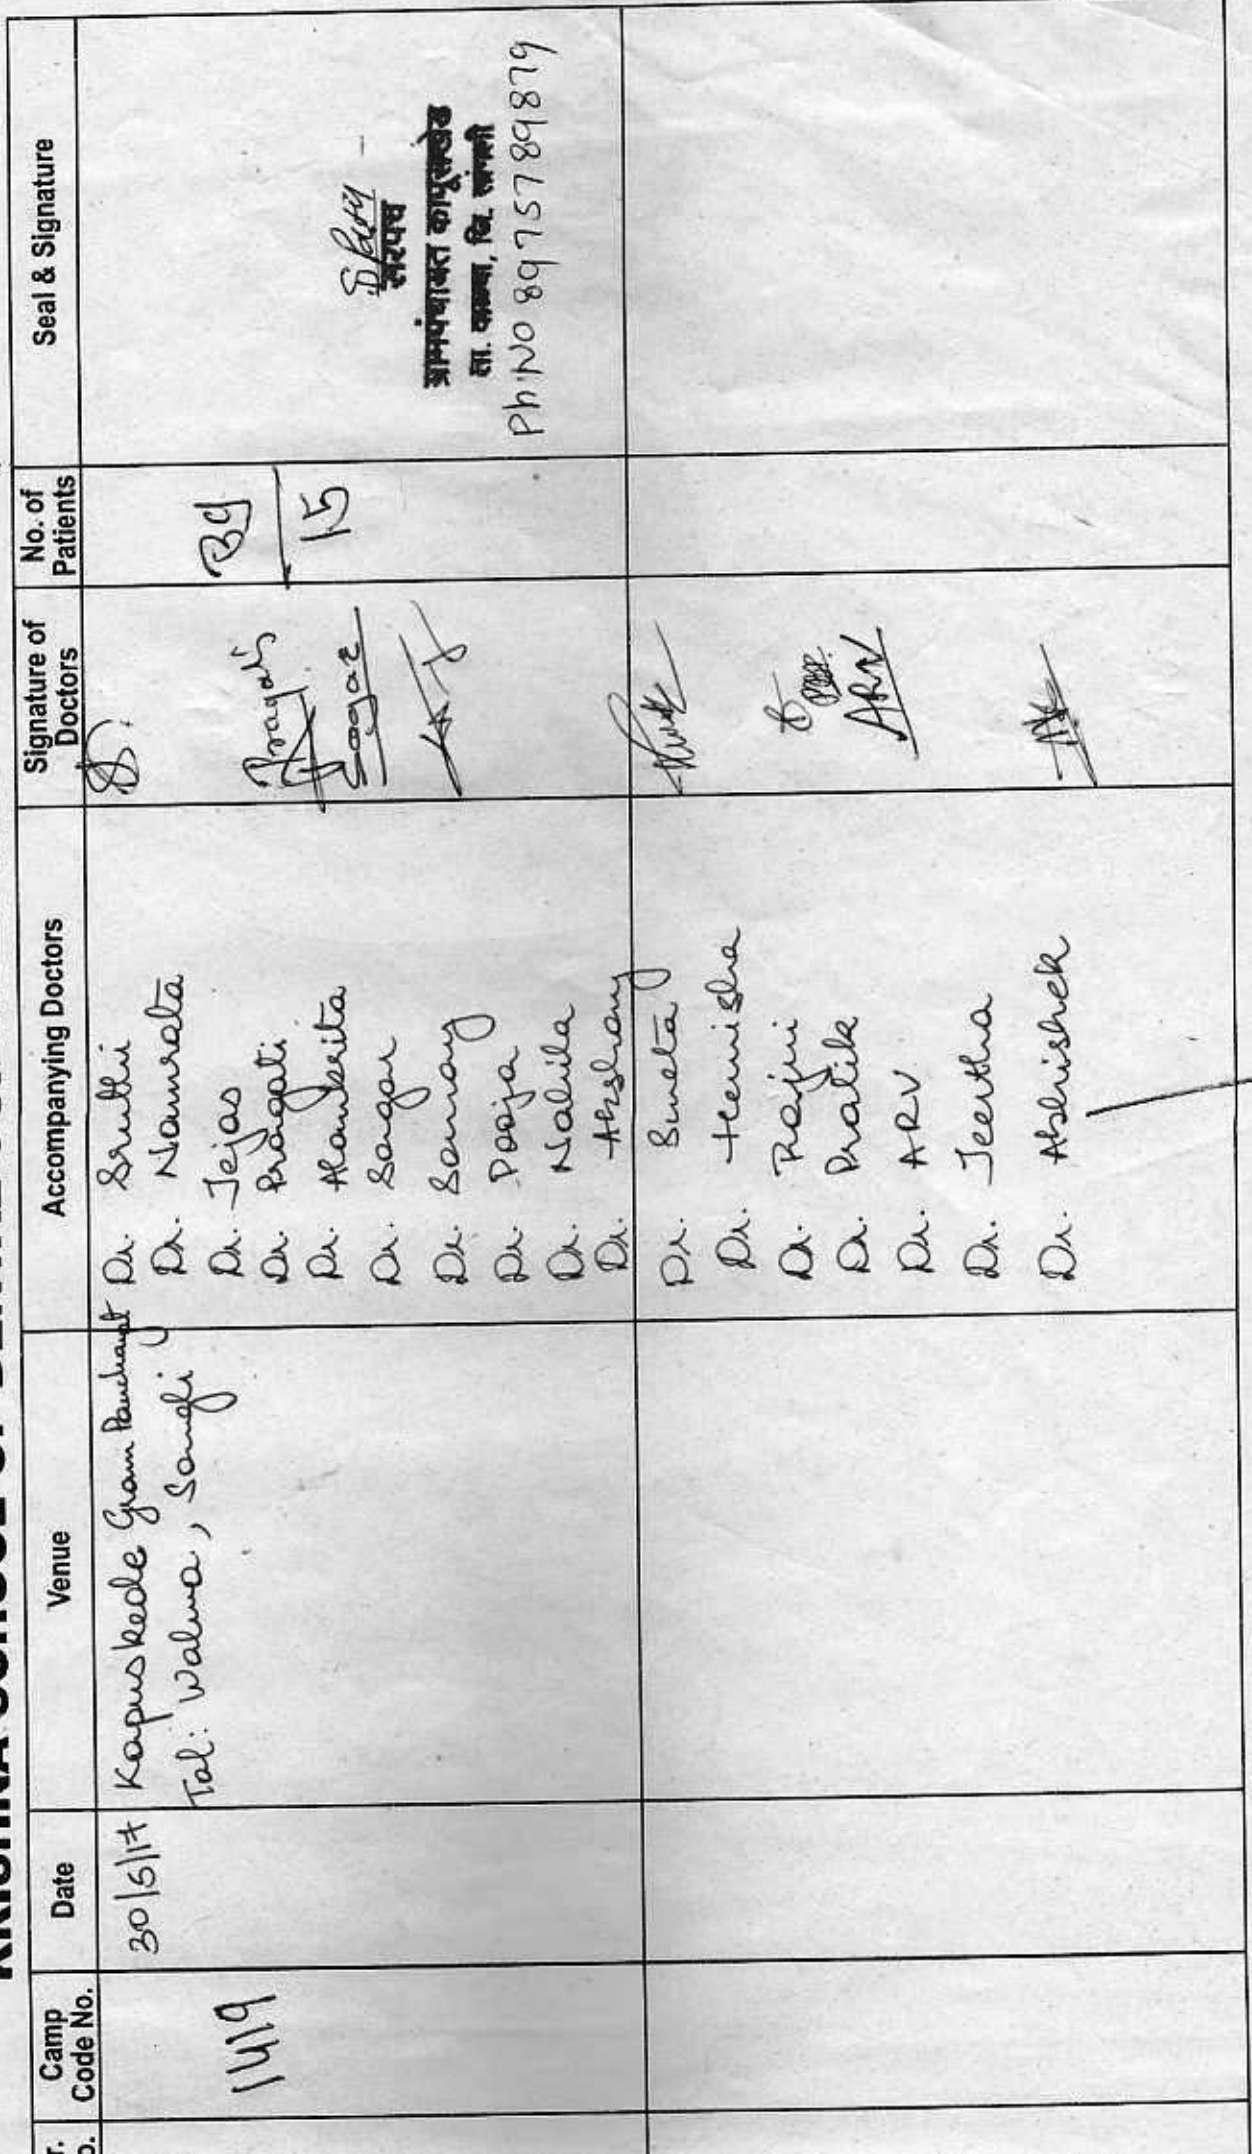 KRISHNA SCHOOL OF DENTAL
Camp Code No.
Date
Venue
Accompanying Doctors
Signature of Doctors
No. of Patients
Seal & Signature
1419
30/5/17
Kapuskede Gram Panchayat
Tal: Walwa, Sangli
Dr. Sruthi
Dr. Namrata
Dr. Tejas
Dr. Pragati
Dr. Alankrita
Dr. Sagar
Dr. Samray
Dr. Pooja
Dr. Nabila
Dr. Akshay
Pragati
Sagar
89
15
सरपंच
ग्रामपंचायत कापूसखेड
ता. वाळवा, जि. सांगली
Ph:NO 8975789879
Dr. Suneta
Dr. Hemisha
Dr. Rajini
Dr. Pratik
Dr. ARV.
Dr. Teertha
Dr. Abhishek
ARV